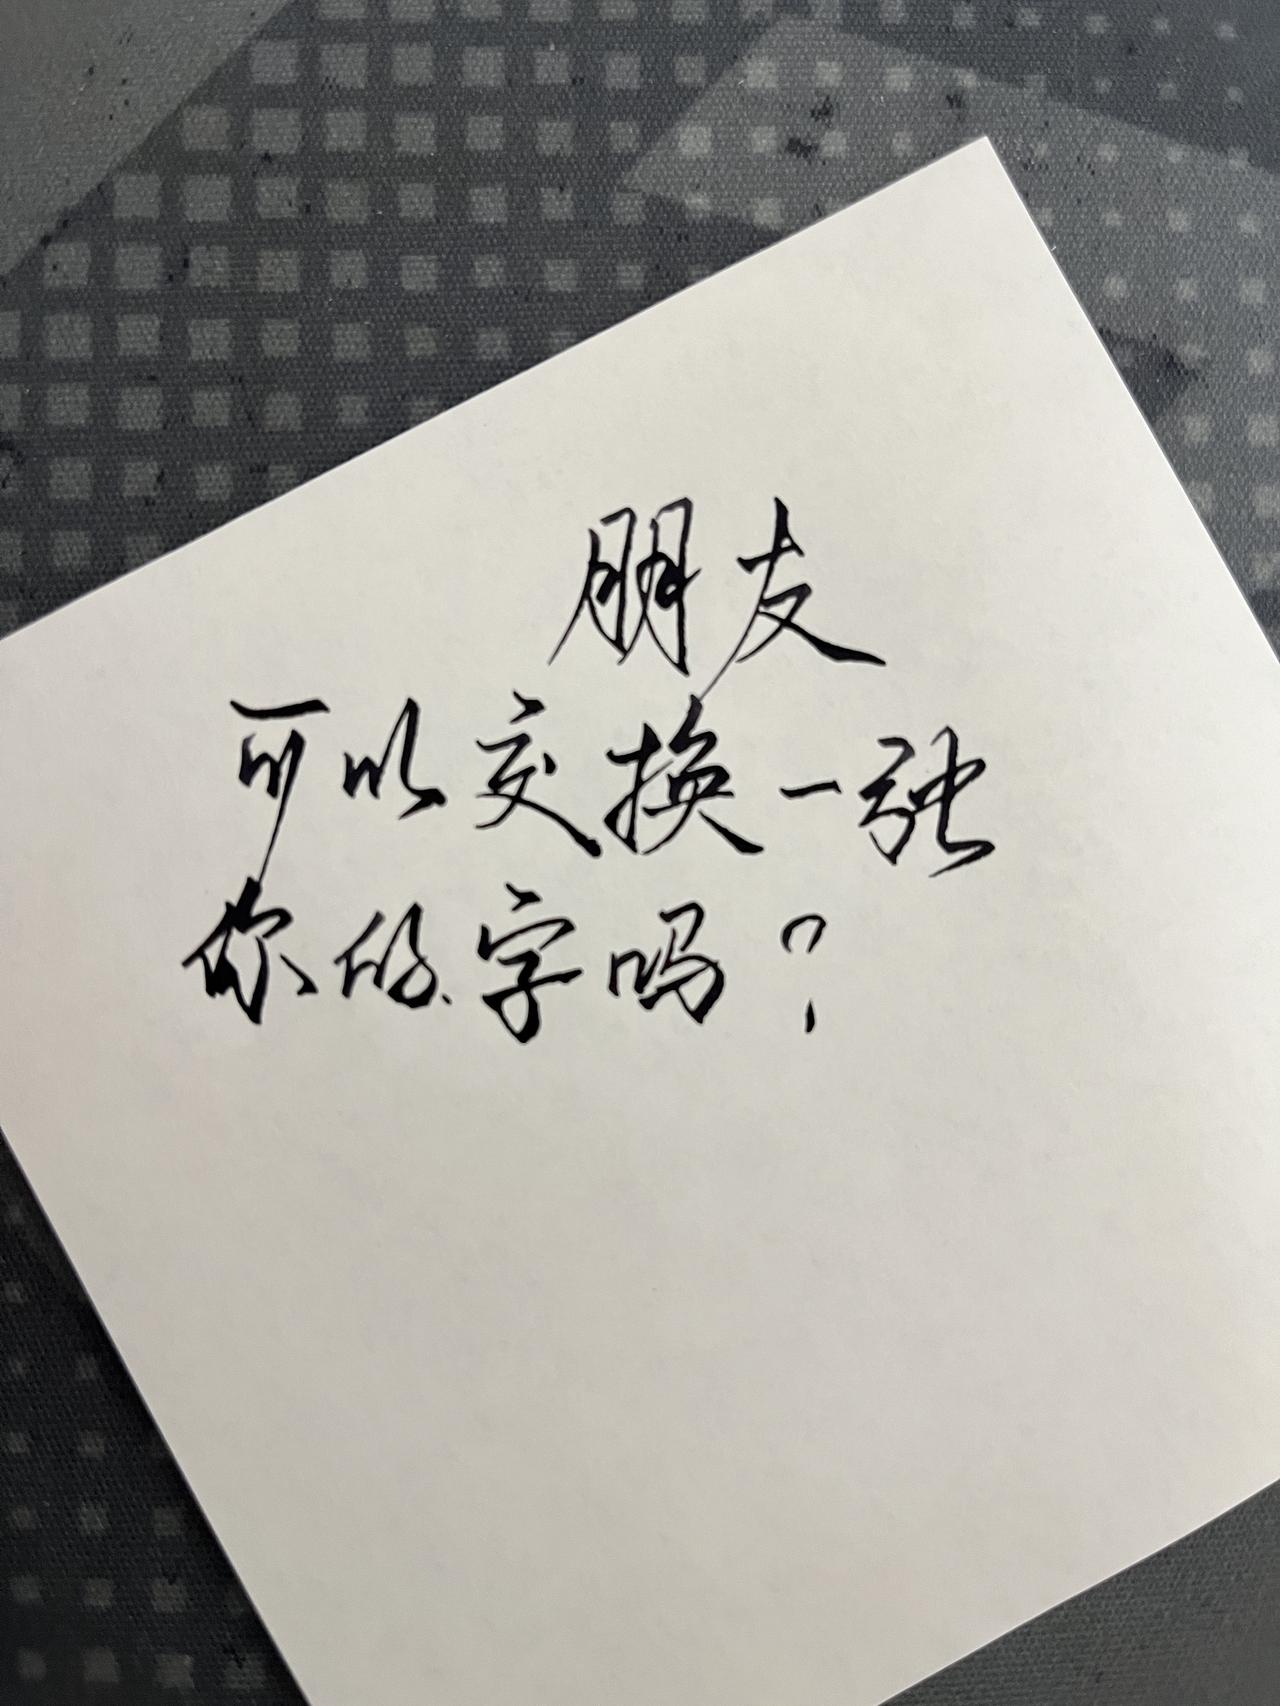 朋友
可以交换一张
你的字吗？